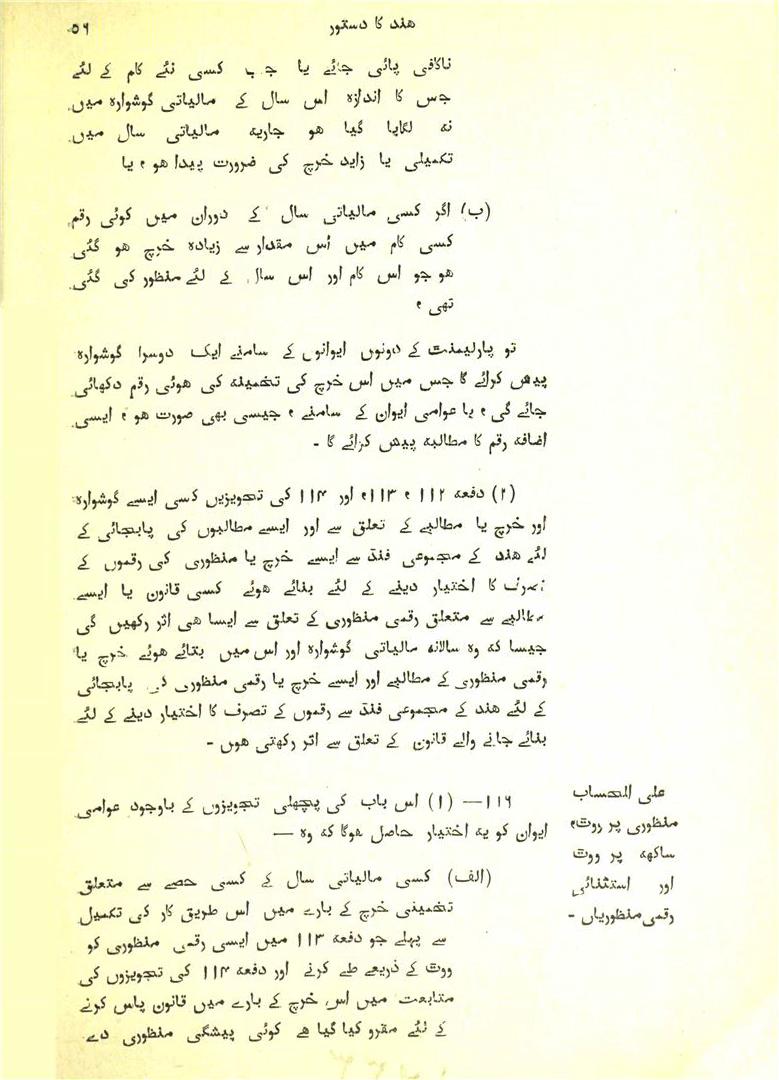 هند کا دستور
۵۶
ناکافی پائی جائے یا جب کسی نئے کام کے لئے
جس کا اندازہ اس سال کے مالیاتی گوشوارہ میں
نہ لگایا گیا هو جاریہ مالیاتی سال میں
تکمیلی یا زاید خرچ کی ضرورت پیدا هو ، یا
(ب) اگر کسی مالیاتی سال کے دوران میں کوئی رقم
کسی کام میں اُس مقدار سے زیادہ خرچ هو گئی
هو جو اس کام اور اس سال کے لئے منظور کی گئی
تھی ،
تو پارلیمنٹ کے دونوں ایوانوں کے سامنے ایک دوسرا گوشوارہ
پیش کرائے گا جس میں اس خرچ کی تخمینہ کی هوئی رقم دکھائی
جائے گی ، یا عوامی ایوان کے سامنے ، جیسی بھی صورت هو ، ایسی
اضافہ رقم کا مطالبہ پیش کرائے گا -
(۲) دفعہ ۱۱۲ ، ۱۱۳، اور ۱۱۴ کی تجویزیں کسی ایسے گوشوارہ
اور خرچ یا مطالبے کے تعلق سے اور ایسے مطالبوں کی پابجائی کے
لئے هند کے مجموعی فنڈ سے ایسے خرچ یا منظوری کی رقموں کے
تصرف کا اختیار دینے کے لئے بنائے هوئے کسی قانون یا ایسے
مطالبے سے متعلق رقمی منظوری کے تعلق سے ایسا هی اثر رکھیں گی
جیسا کہ وہ سالانہ مالیاتی گوشوارہ اور اس میں بتائے هوئے خرچ یا
رقمی منظوری کے مطالبے اور ایسے خرچ یا رقمی منظوری کی پابجائی
کے لئے هند کے مجموعی فنڈ سے رقموں کے تصرف کا اختیار دینے کے لئے
بنائے جانے والے قانون کے تعلق سے اثر رکھتی هوں -
علی الحساب
منظوری پر ووٹ،
ساکھ پر ووٹ
اور استثنائی
رقمی منظوریاں -
۱۱۶— (۱) اس باب کی پچھلی تجویزوں کے باوجود عوامی
ایوان کو یہ اختیار حاصل هوگا کہ وہ —
(الف) کسی مالیاتی سال کے کسی حصے سے متعلق
تخمینی خرچ کے بارے میں اس طریق کار کی تکمیل
سے پہلے جو دفعہ ۱۱۳ میں ایسی رقمی منظوری کو
ووٹ کے ذریعے طے کرنے اور دفعہ ۱۱۴ کی تجویزوں کی
متابعت میں اس خرچ کے بارے میں قانون پاس کرنے
کے لئے مقرو کیا گیا هے کوئی پیشگی منظوری دے